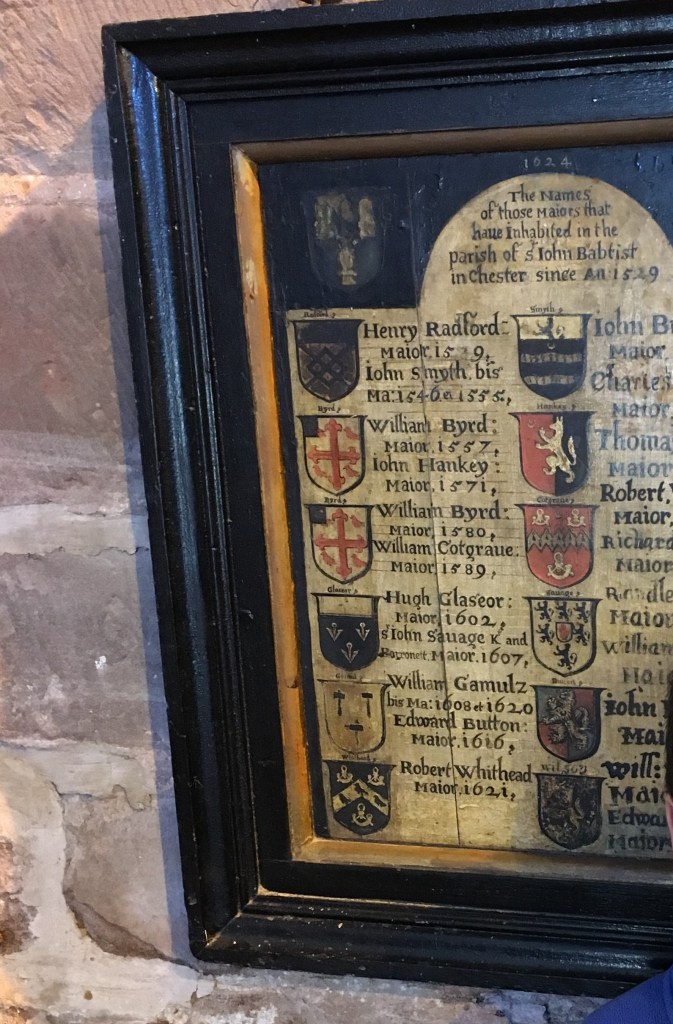 1624
The Names
of those Maiors that
haue Inhabited in the
parish of St Iohn Babtist
in Chester since An 1529
Radford
Henry Radford:
Maior, 1529,
Iohn Smyth, bis
Ma: 1546 et 1555,
Byrd
William Byrd:
Maior, 1557,
Iohn Hankey:
Maior, 1571,
Byrd
William Byrd:
Maior, 1580,
William Cotgraue.
Maior 1589,
Glaseor
Hugh Glaseor:
Maior, 1602,
Sr Iohn Sauage K and
Barronett, Maior. 1607,
William Gamulz
bis Ma: 1608 et 1620
Edward Button:
Maior, 1616,
Robert Whithead
Maior, 1621,
Smyth
Hankey
Cotgraue
Sauage
Iohn
Maior
Charles
Maior
Thoma
Maior
Robert,
Maior,
Richard
Maior
Maior
William
Maior
Iohn
Maior
Will:
Maior
Edwa
Maior